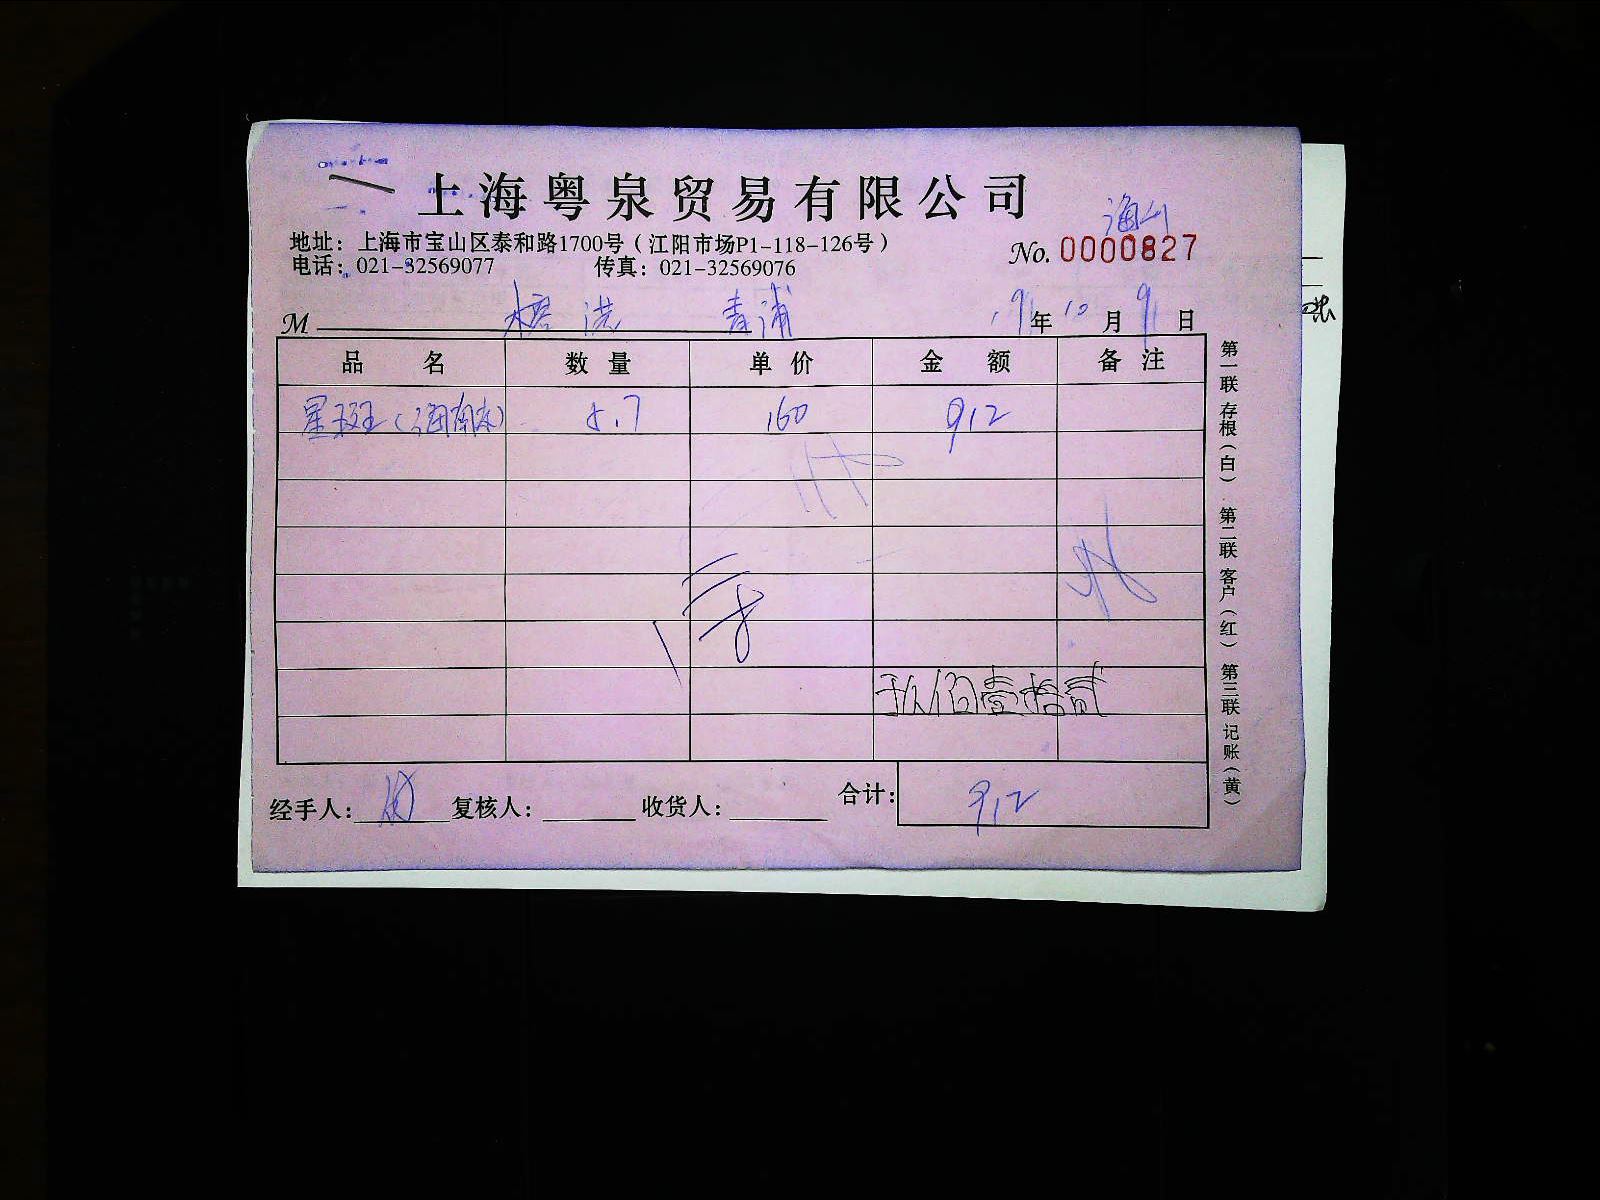 上海粤泉贸易有限公司
地址：上海市宝山区泰和路1700号（江阳市场P1-118-126号）
No. 0000827
电话：021-32569077 传真：021-32569076
M 青浦 19年10月9日
品名 数量 单价 金额 备注
星斑（海南 5.7 160 912
玖佰壹拾贰
经手人： 复核人： 收货人： 合计：912
第一联存根（白） 第二联客户（红） 第三联记账（黄）